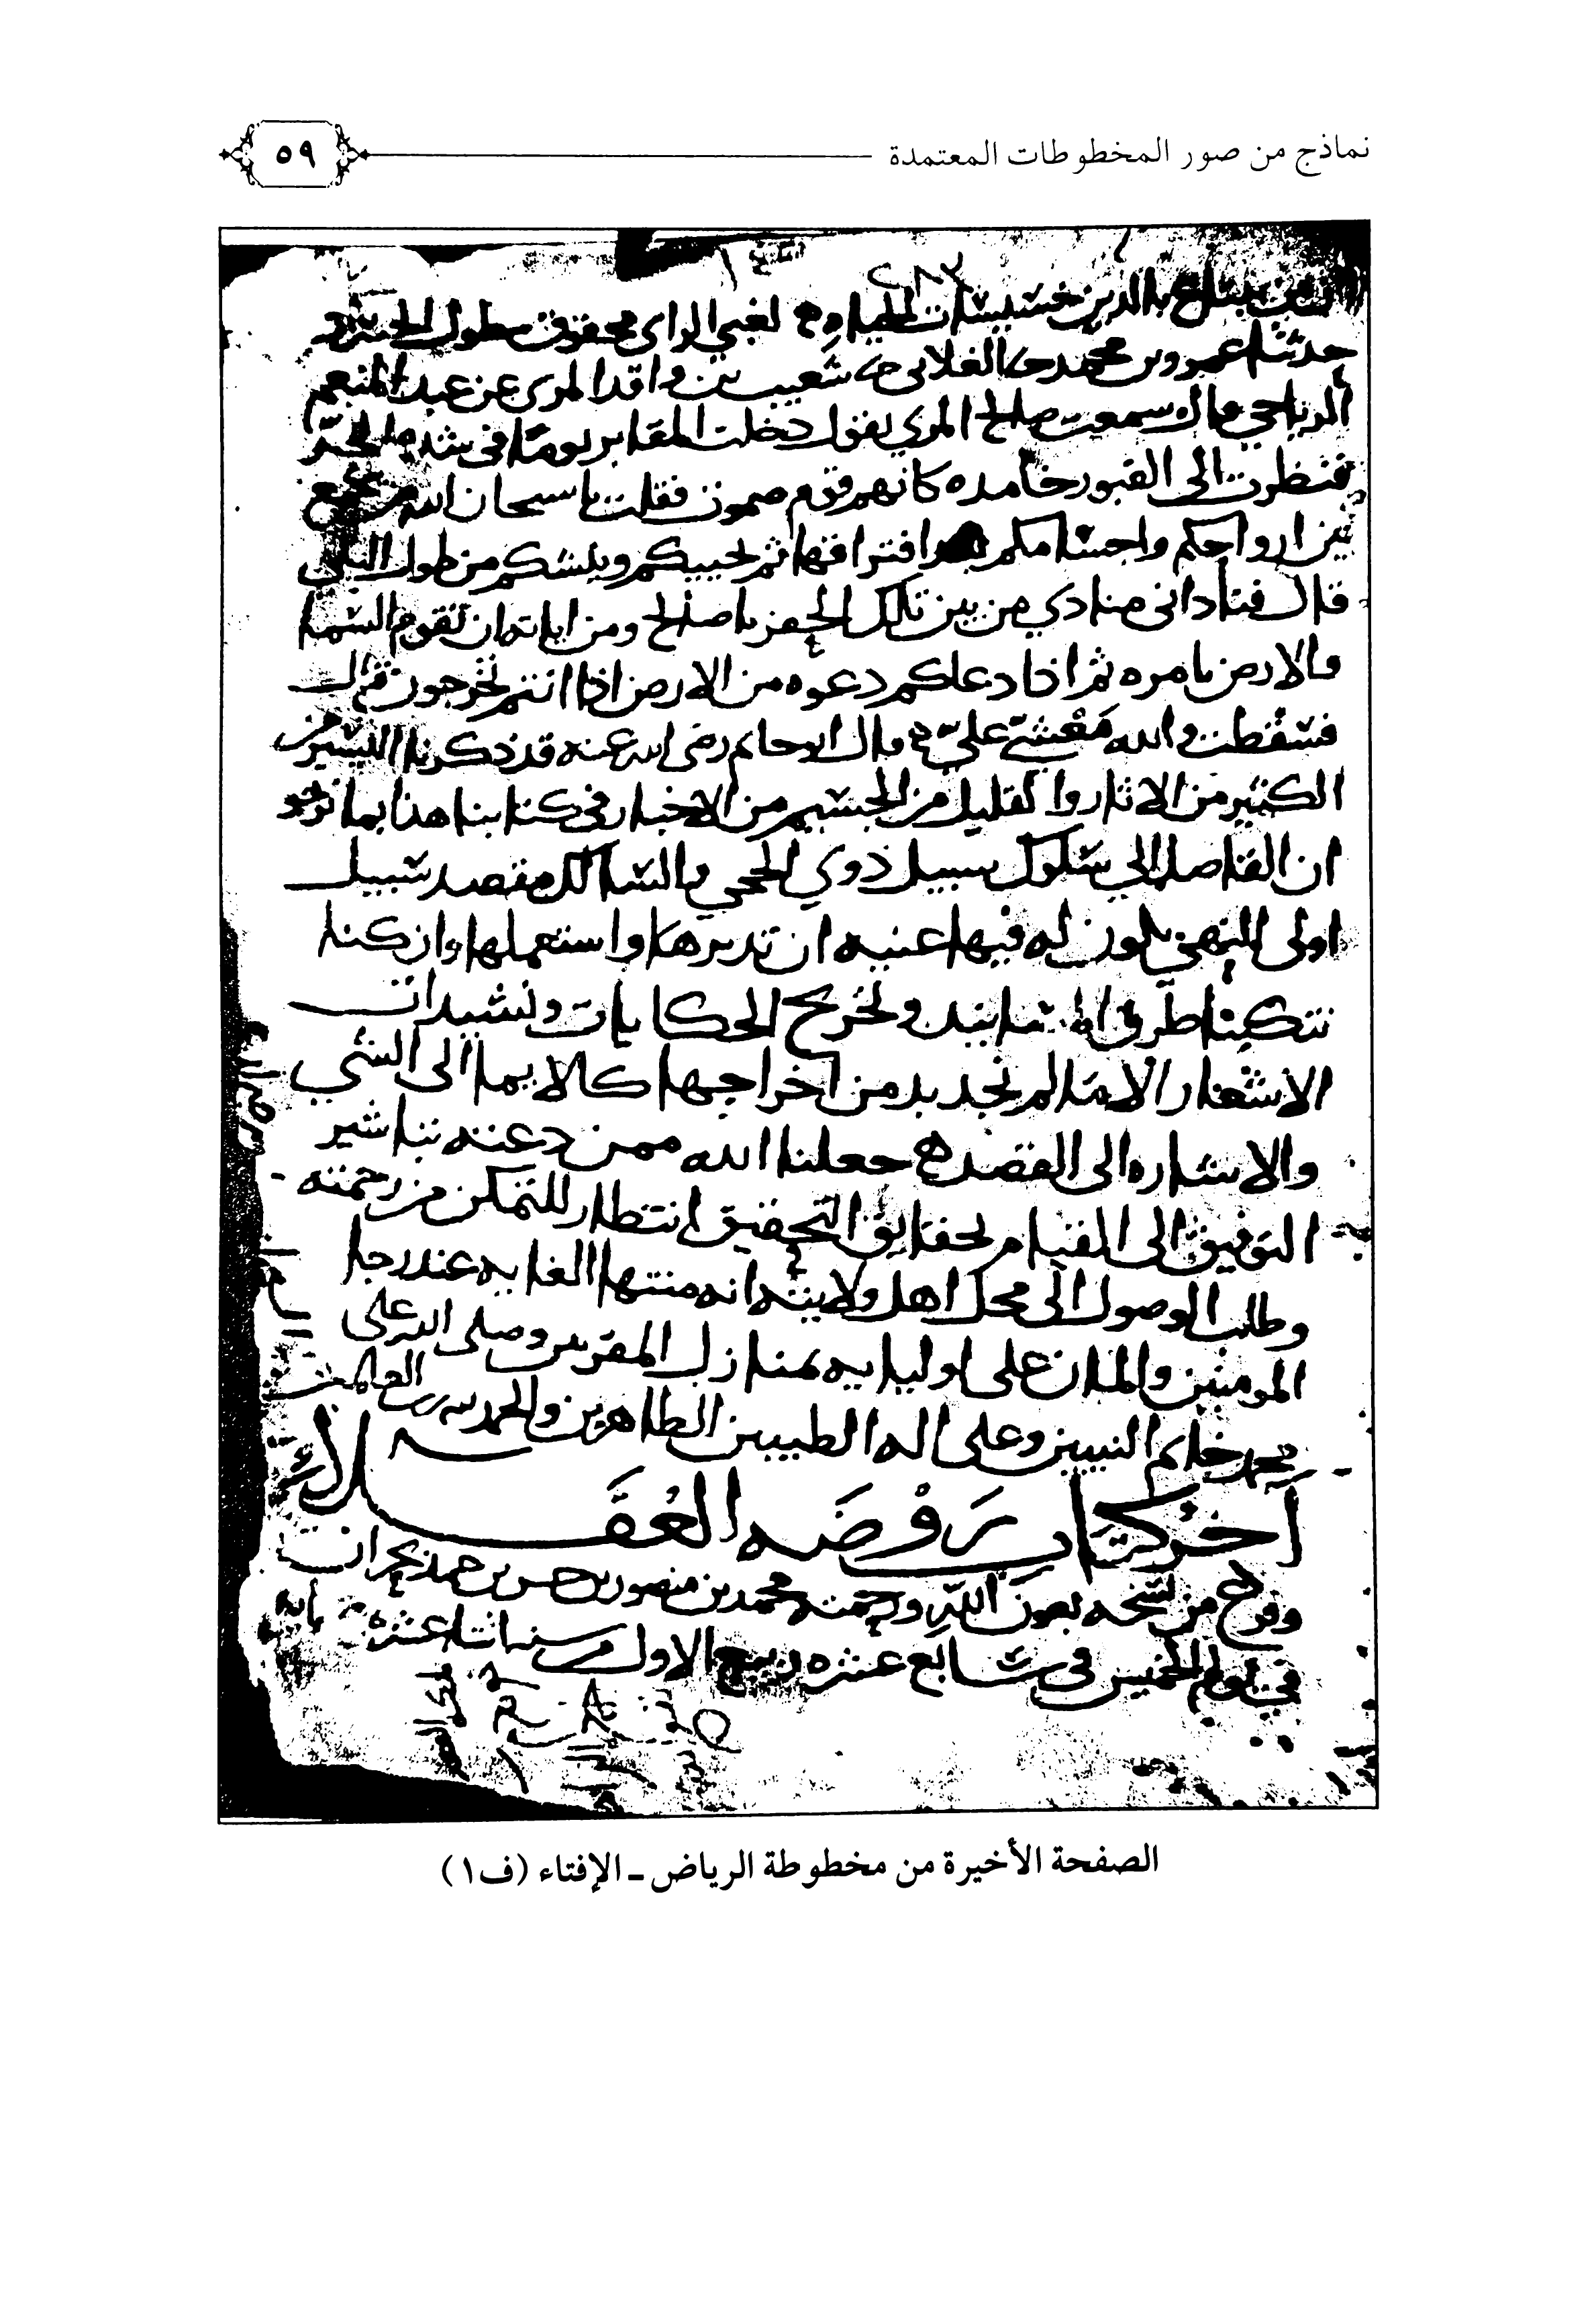 نماذج من صور المخطوطات المعتمدة
٥٩
٢٨٣
بالدين خسيسات الحياه لغبي الراى محقوق بطول الحسره
حدثنا عمرو بن محمد حدثنا الغلابى حدثنا شعيب بن واقد المرى عن عبد المنعم
الرياحي قال سمعت صالح المري يقول دخلت المقابر يوما في شده الحر
فنظرت الى القبور خامده كانهم قوم صموت فقلت يا سبحان الله من يجمع
بين ارواحكم واجسامكم بعد افتراقها ثم يحييكم وينشركم من طول البلى
قال فنادانى منادي من بين تلك الحفر يا صالح ومن اياته ان تقوم السما
والارض بامره ثم اذا دعاكم دعوه من الارض اذا انتم تخرجون قال
فسقطت والله مغشي علي قال ابو حاتم رضى الله عنه قد ذكرنا اليسير من
الكثير من الاثار والقليل من الجسيم من الاخبار في كتابنا هذا بما نرجو
ان القاصد الى سلوك سبيل ذوي الحجى والسالك مقصد سبيل
اولى النهى يكون له فيها غنيه ان تدبرها واستعملها وان كنا
تنكبنا طرق المسانيد وتخريج الحكايات وانشيدات
الاشعار الا ما لم نجد بد من اخراجها كالايما الى الشي
والاشاره الى القصد جعلنا الله ممن دعته تباشير
التوفيق الى القيام بحقايق التحقيق انتظار للتمكن من رحمته
وطلب الوصول الى محل اهل ولايته انه منتها الغايه عند رجا
المومنين والمان على اوليايه بمنازل المقربين وصلى الله على
محمد خاتم النبيين وعلى اله الطيبين الطاهرين والحمد لله رب العالمين
اخر كتاب روضه العقلاء
وفرغ من نسخه بعون الله ورحمته محمد بن منصور بن حسن بن حمد
في يوم الخميس في سابع عشره ربيع الاول من سنه اثنا عشره
الصفحة الأخيرة من مخطوطة الرياض ـ الإفتاء (ف١)